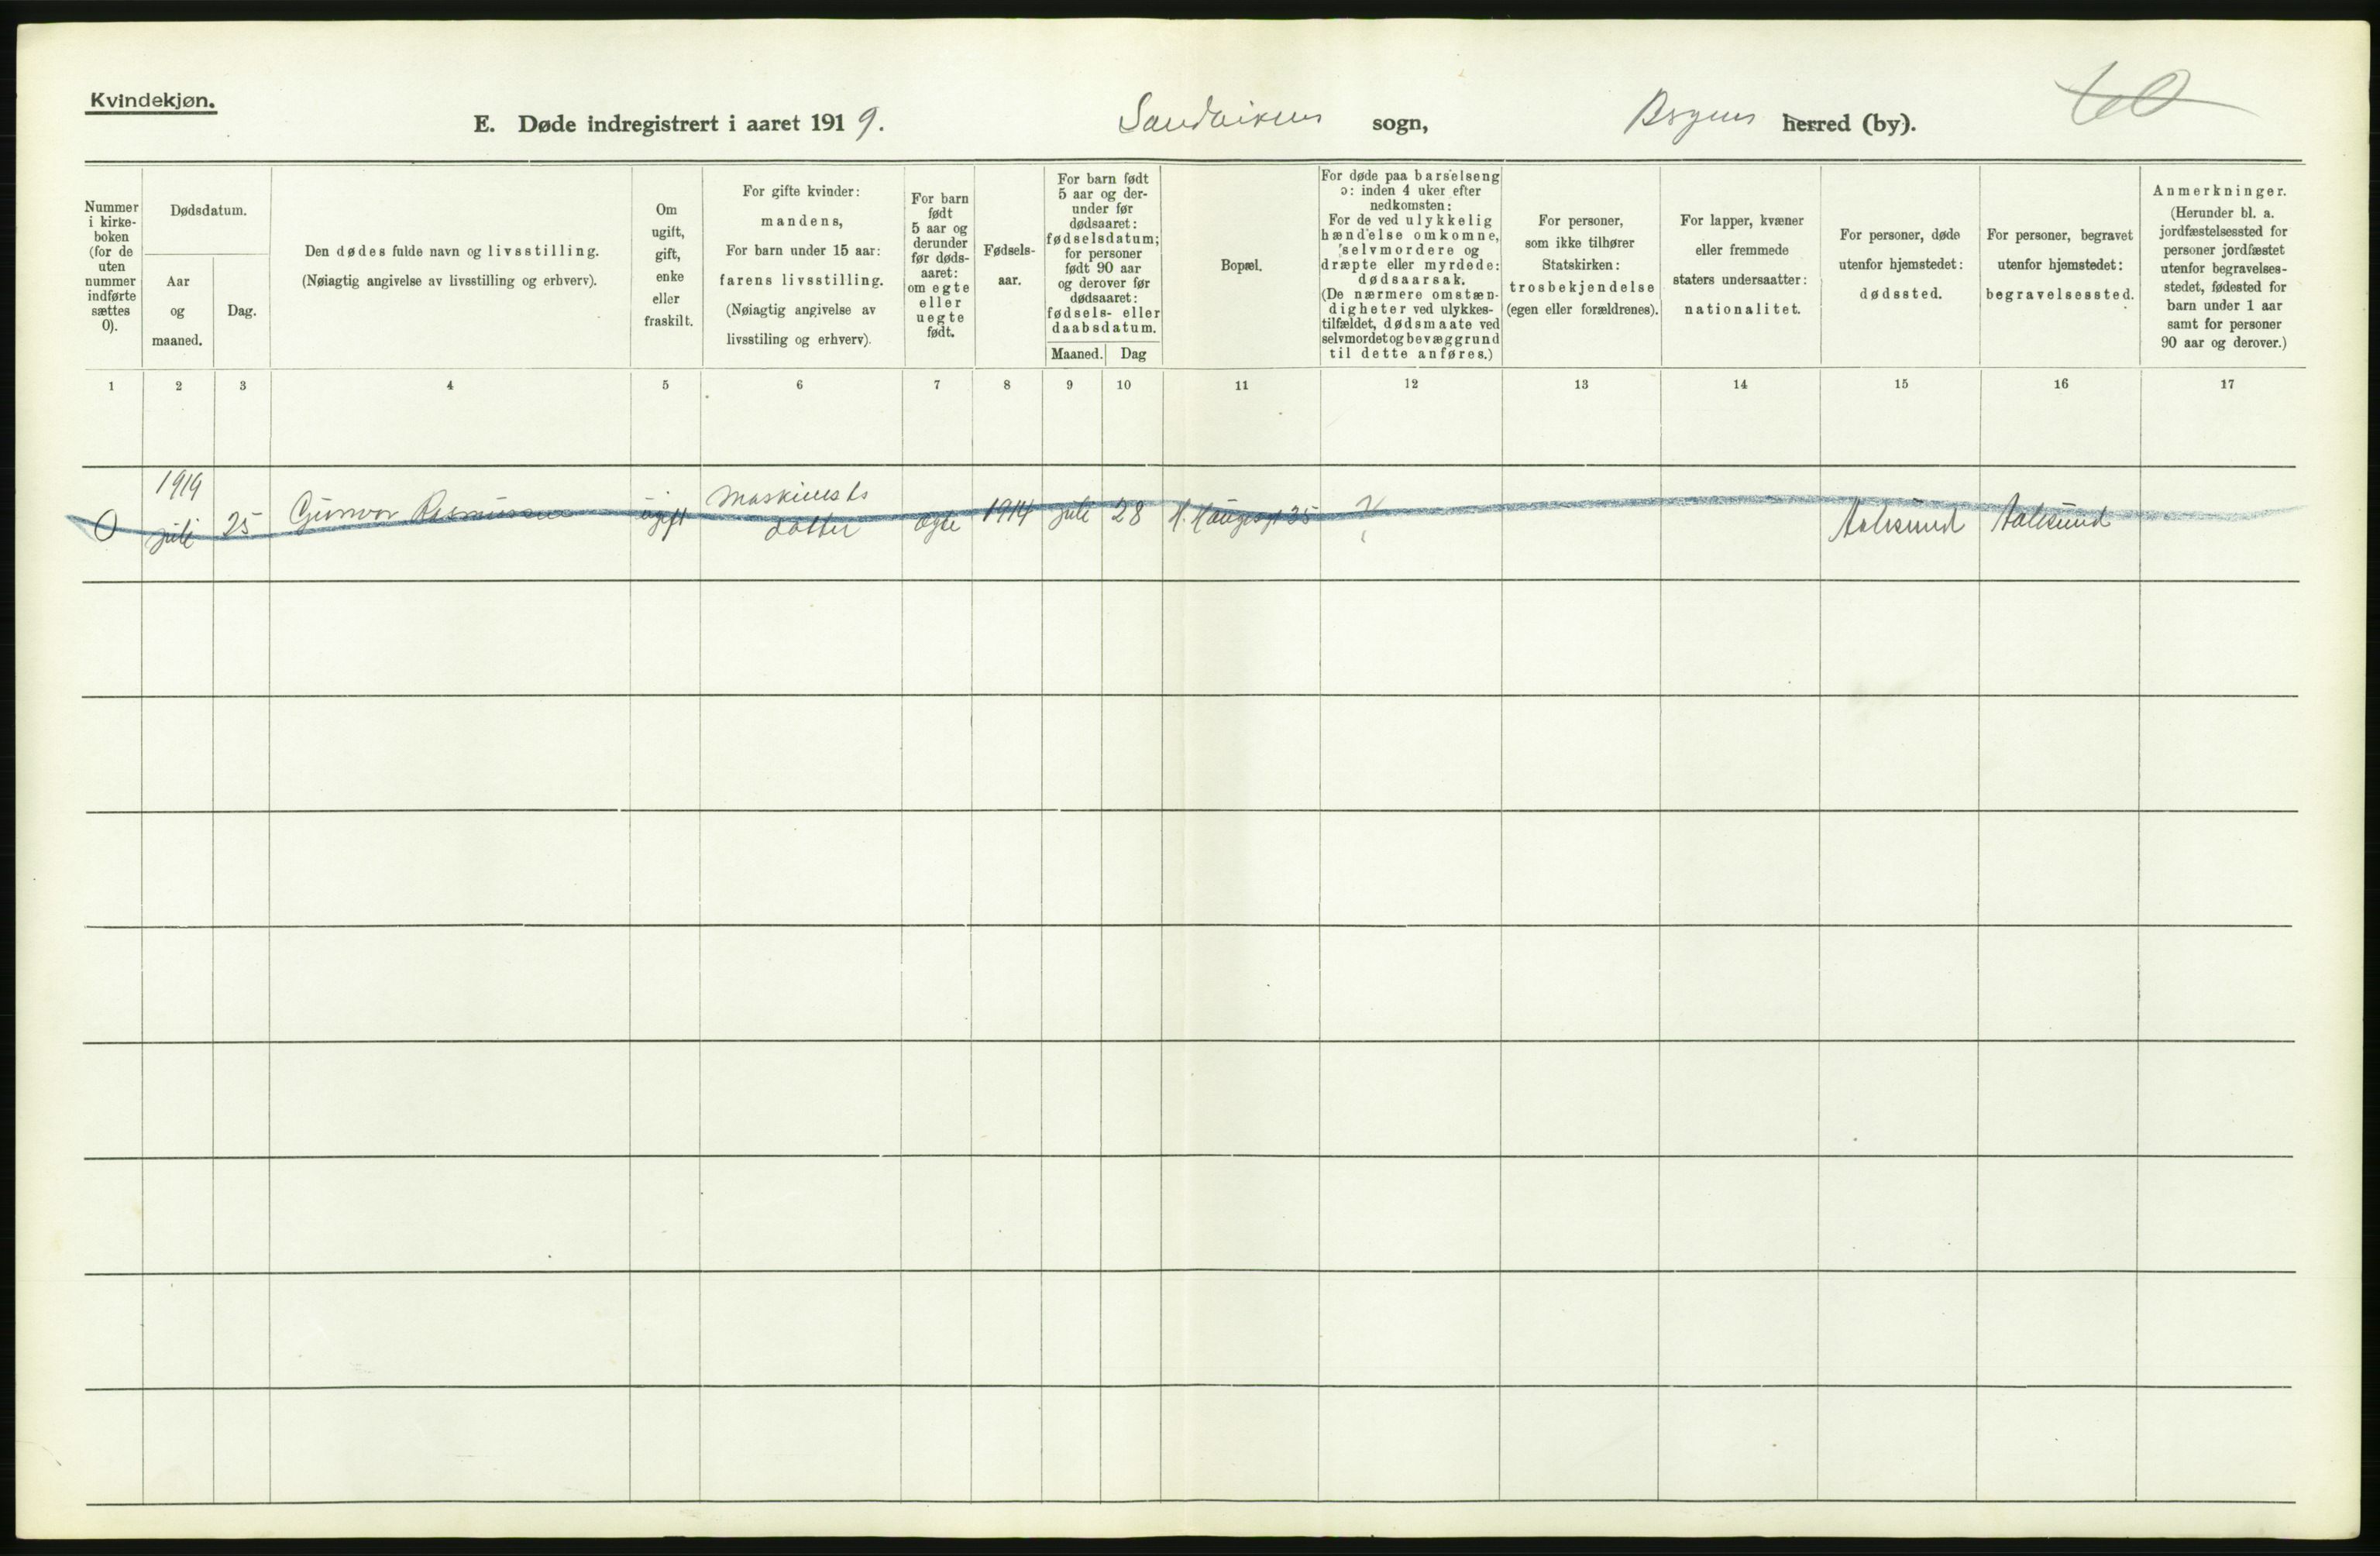 Kvindekjøn.
E. Døde indregistrert i aaret 1919. Sandvikens sogn, Bergens herred (by).
Nummer i kirke- boken (for de uten nummer indførte sættes 0).
Dødsdatum.
Aar og maaned.
Dag.
Den dødes fulde navn og livsstilling.
(Nøiagtig angivelse av livsstilling og erhverv).
Om ugift, gift, enke eller fraskilt.
For gifte kvinder:
mandens,
For barn under 15 aar:
farens livsstilling.
(Nøiagtig angivelse av
livsstiling og erhverv).
For barn født 5 aar og derunder før døds- aaret: om egte eller uegte født.
Fødsels- aar.
For barn født 5 aar og der- under før dødsaaret: fødselsdatum; for personer født 90 aar og derover før dødsaaret: fødsels- eller daabsdatum.
Maaned. Dag
Bopæl.
For døde paa barselseng ɔ: inden 4 uker efter nedkomsten:
For de ved ulykkelig hændelse omkomne, selvmordere og dræpte eller myrdede: dødsaarsak.
(De nærmere omstæn- digheter ved ulykkes- tilfældet, dødsmaate ved selvmordet og bevæggrund til dette anføres.)
For personer, som ikke tilhører Statskirken: trosbekjendelse (egen eller forældrenes).
For lapper, kvæner eller fremmede staters undersaatter: nationalitet.
For personer, døde utenfor hjemstedet: dødssted.
For personer, begravet utenfor hjemstedet: begravelsessted.
Anmerkninger.
(Herunder bl. a. jordfæstelsessted for personer jordfæstet utenfor begravelses- stedet, fødested for barn under 1 aar samt for personer 90 aar og derover.)
1 2 3 4 5 6 7 8 9 10 11 12 13 14 15 16 17
1919 Maskinists
0 juli 25 Gunvor Rasmussen ugift datter egte 1914 juli 28 H. Haugesgt 35 ? Aalesund Aalesund